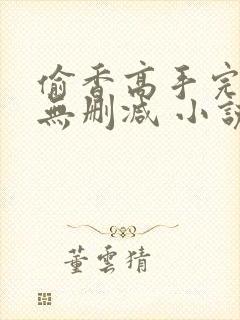 偷香高手完
無刪減 小說
董雲猜